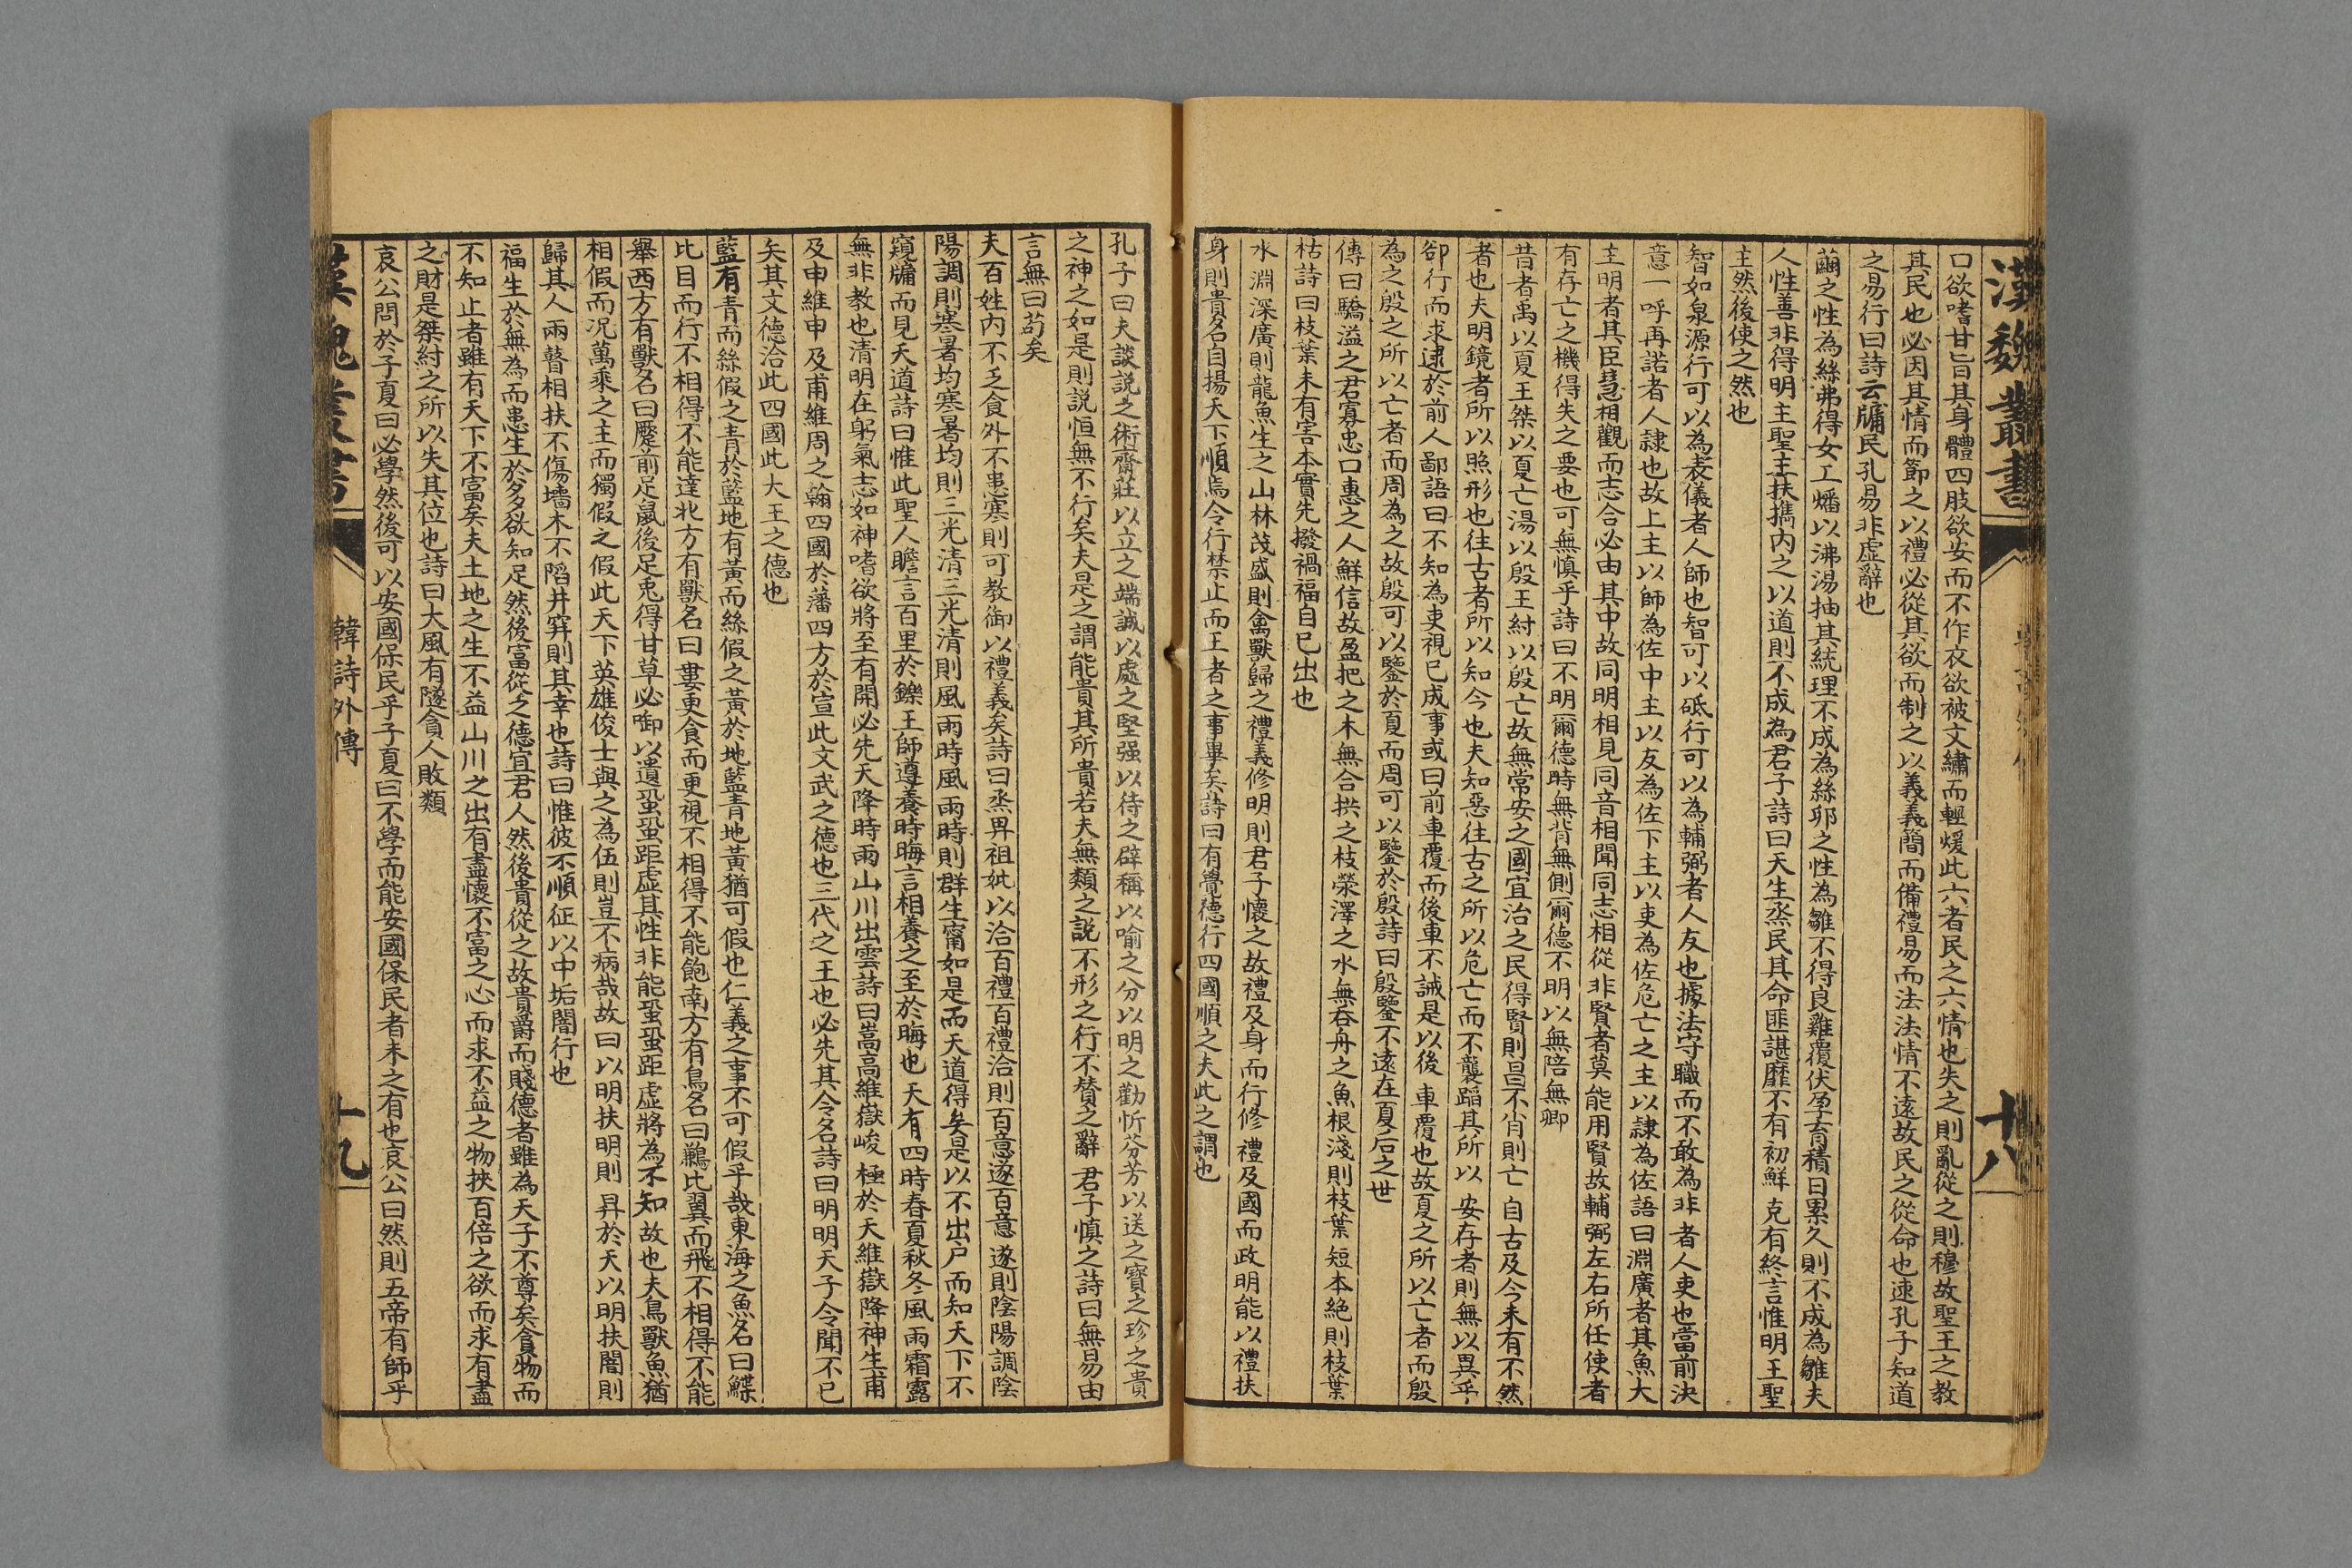 漢魏叢書
十八
口欲嗜甘旨其身體四肢欲安而不作衣欲被文繡而輕煖此六者民之六情也失之則亂從之則穆故聖王之教
其民也必因其情而節之以禮必從其欲而制之以義義簡而備禮易而法法情不遠故民之從命也速孔子知道
之易行曰詩云牖民孔易非虛辭也
繭之性為絲弗得女工燔以沸湯抽其統理不成為絲卵之性為雛不得良雞覆伏孕育積日累久則不成為雛夫
人性善非得明主聖主扶攜內之以道則不成為君子詩曰天生烝民其命匪諶靡不有初鮮克有終言惟明王聖
主然後使之然也
智如泉源行可以為表儀者人師也智可以砥行可以為輔弼者人友也據法守職而不敢為非者人吏也當前決
意一呼再諾者人隸也故上主以師為佐中主以友為佐下主以吏為佐危亡之主以隸為佐語曰淵廣者其魚大
主明者其臣慧相觀而志合必由其中故同明相見同音相聞同志相從非賢者莫能用賢故輔弼左右所任使者
有存亡之機得失之要也可無慎乎詩曰不明爾德時無背無側爾德不明以無陪無卿
昔者禹以夏王桀以夏亡湯以殷王紂以殷亡故無常安之國宜治之民得賢則昌不肖則亡自古及今未有不然
者也夫明鏡者所以照形也往古者所以知今也夫知惡往古之所以危亡而不襲蹈其所以安存者則無以異乎
卻行而求逮於前人鄙語曰不知為吏視已成事或曰前車覆而後車不誡是以後車覆也故夏之所以亡者而殷
為之殷之所以亡者而周為之故殷可以鑒於夏而周可以鑒於殷詩曰殷鑒不遠在夏后之世
傳曰驕溢之君寡忠口惠之人鮮信故盈把之木無合拱之枝滎澤之水無吞舟之魚根淺則枝葉短本絕則枝葉
枯詩曰枝葉未有害本實先撥禍福自已出也
水淵深廣則龍魚生之山林茂盛則禽獸歸之禮義修明則君子懷之故禮及身而行修禮及國而政明能以禮扶
身則貴名自揚天下順焉令行禁止而王者之事畢矣詩曰有覺德行四國順之夫此之謂也
孔子曰夫談說之術齋莊以立之端誠以處之堅强以待之辟稱以喻之分以明之勸忻芬芳以送之寶之珍之貴
之神之如是則說恒無不行矣夫是之謂能貴其所貴若夫無類之說不形之行不贊之辭君子慎之詩曰無易由
言無曰苟矣
夫百姓內不乏食外不患寒則可教御以禮義矣詩曰烝畀祖妣以洽百禮百禮洽則百意遂百意遂則陰陽調陰
陽調則寒暑均寒暑均則三光清三光清則風雨時風雨時則群生寧如是而天道得矣是以不出户而知天下不
窺牖而見天道詩曰惟此聖人瞻言百里於鑠王師遵養時晦言相養之至於晦也天有四時春夏秋冬風雨霜露
無非教也清明在躬氣志如神嗜欲將至有開必先天降時雨山川出雲詩曰嵩高維嶽峻極於天維嶽降神生甫
及申維申及甫維周之翰四國於藩四方於宣此文武之德也三代之王也必先其令名詩曰明明天子令聞不已
矣其文德洽此四國此大王之德也
藍有青而絲假之青於藍地有黃而絲假之黃於地藍青地黃猶可假也仁義之事不可假乎哉東海之魚名曰鰈
比目而行不相得不能達北方有獸名曰婁更食而更視不相得不能飽南方有鳥名曰鶼比翼而飛不相得不能
舉西方有獸名曰蹷前足鼠後足兎得甘草必啣以遺蛩蛩距虛其性非能蛩蛩距虛將為不知故也夫鳥獸魚猶
相假而况萬乘之主而獨假之假此天下英雄俊士與之為伍則豈不病哉故曰以明扶明則昇於天以明扶闇則
歸其人兩瞽相扶不傷墻木不陷井穽則其幸也詩曰惟彼不順征以中垢闇行也
福生於無為而患生於多欲知足然後富從之德宜君人然後貴從之故貴爵而賤德者雖為天子不尊矣貪物而
不知止者雖有天下不富矣夫土地之生不益山川之出有盡懷不富之心而求不益之物挾百倍之欲而求有盡
之財是桀紂之所以失其位也詩曰大風有隧貪人敗類
哀公問於子夏曰必學然後可以安國保民乎子夏曰不學而能安國保民者未之有也哀公曰然則五帝有師乎
漢魏叢書
韓詩外傳
十九